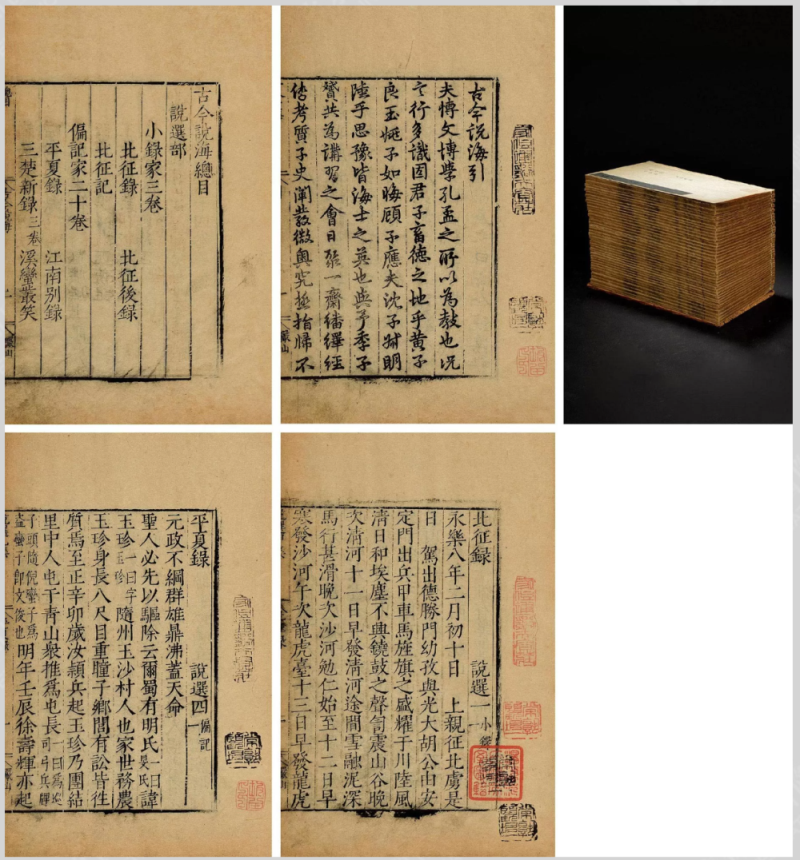 古今說海總目
說選部
小錄家三卷
北征錄 北征後錄
北征記
偏記家二十卷
平夏錄 江南別錄
三楚新錄三卷 溪蠻叢笑
古今說海引
夫博文博學孔孟之所以為教也況
言行多識固君子畜德之地乎黃子
良玉姚子如晦顧子應夫沈子明
陸子思豫皆海士之英也與予季子
贊共為講習之會日聚一齋繙繹經
傳考質子史闡發微奧究極指歸不
平夏錄 說選四 偏記一
元政不綱群雄鼎沸蓋天命
聖人必先以驅除云爾蜀有明氏一曰旻氏諱
玉珍一曰字玉珍隨州玉沙村人也家世務農
玉珍身長八尺目重瞳子鄉閭有訟皆往
質焉至正辛卯歲汝潁兵起玉珍乃團結
里中人屯于青山衆推爲屯長一曰爲巡司弓兵牌
子頭隨倪蠻子爲盜蠻子即文俊也明年壬辰徐壽輝亦起
北征錄 說選一 小錄一
永樂八年二月初十日 上親征北虜是
日 駕出德勝門幼孜與光大胡公由安
定門出兵甲車馬旌旗之盛耀于川陸風
清日和埃塵不興鐃鼓之聲訇震山谷晚
次清河十一日早發清河途間雪融泥深
馬行甚滑晚次沙河勉仁始至十二日早
寒發沙河午次龍虎臺十三日早發龍虎